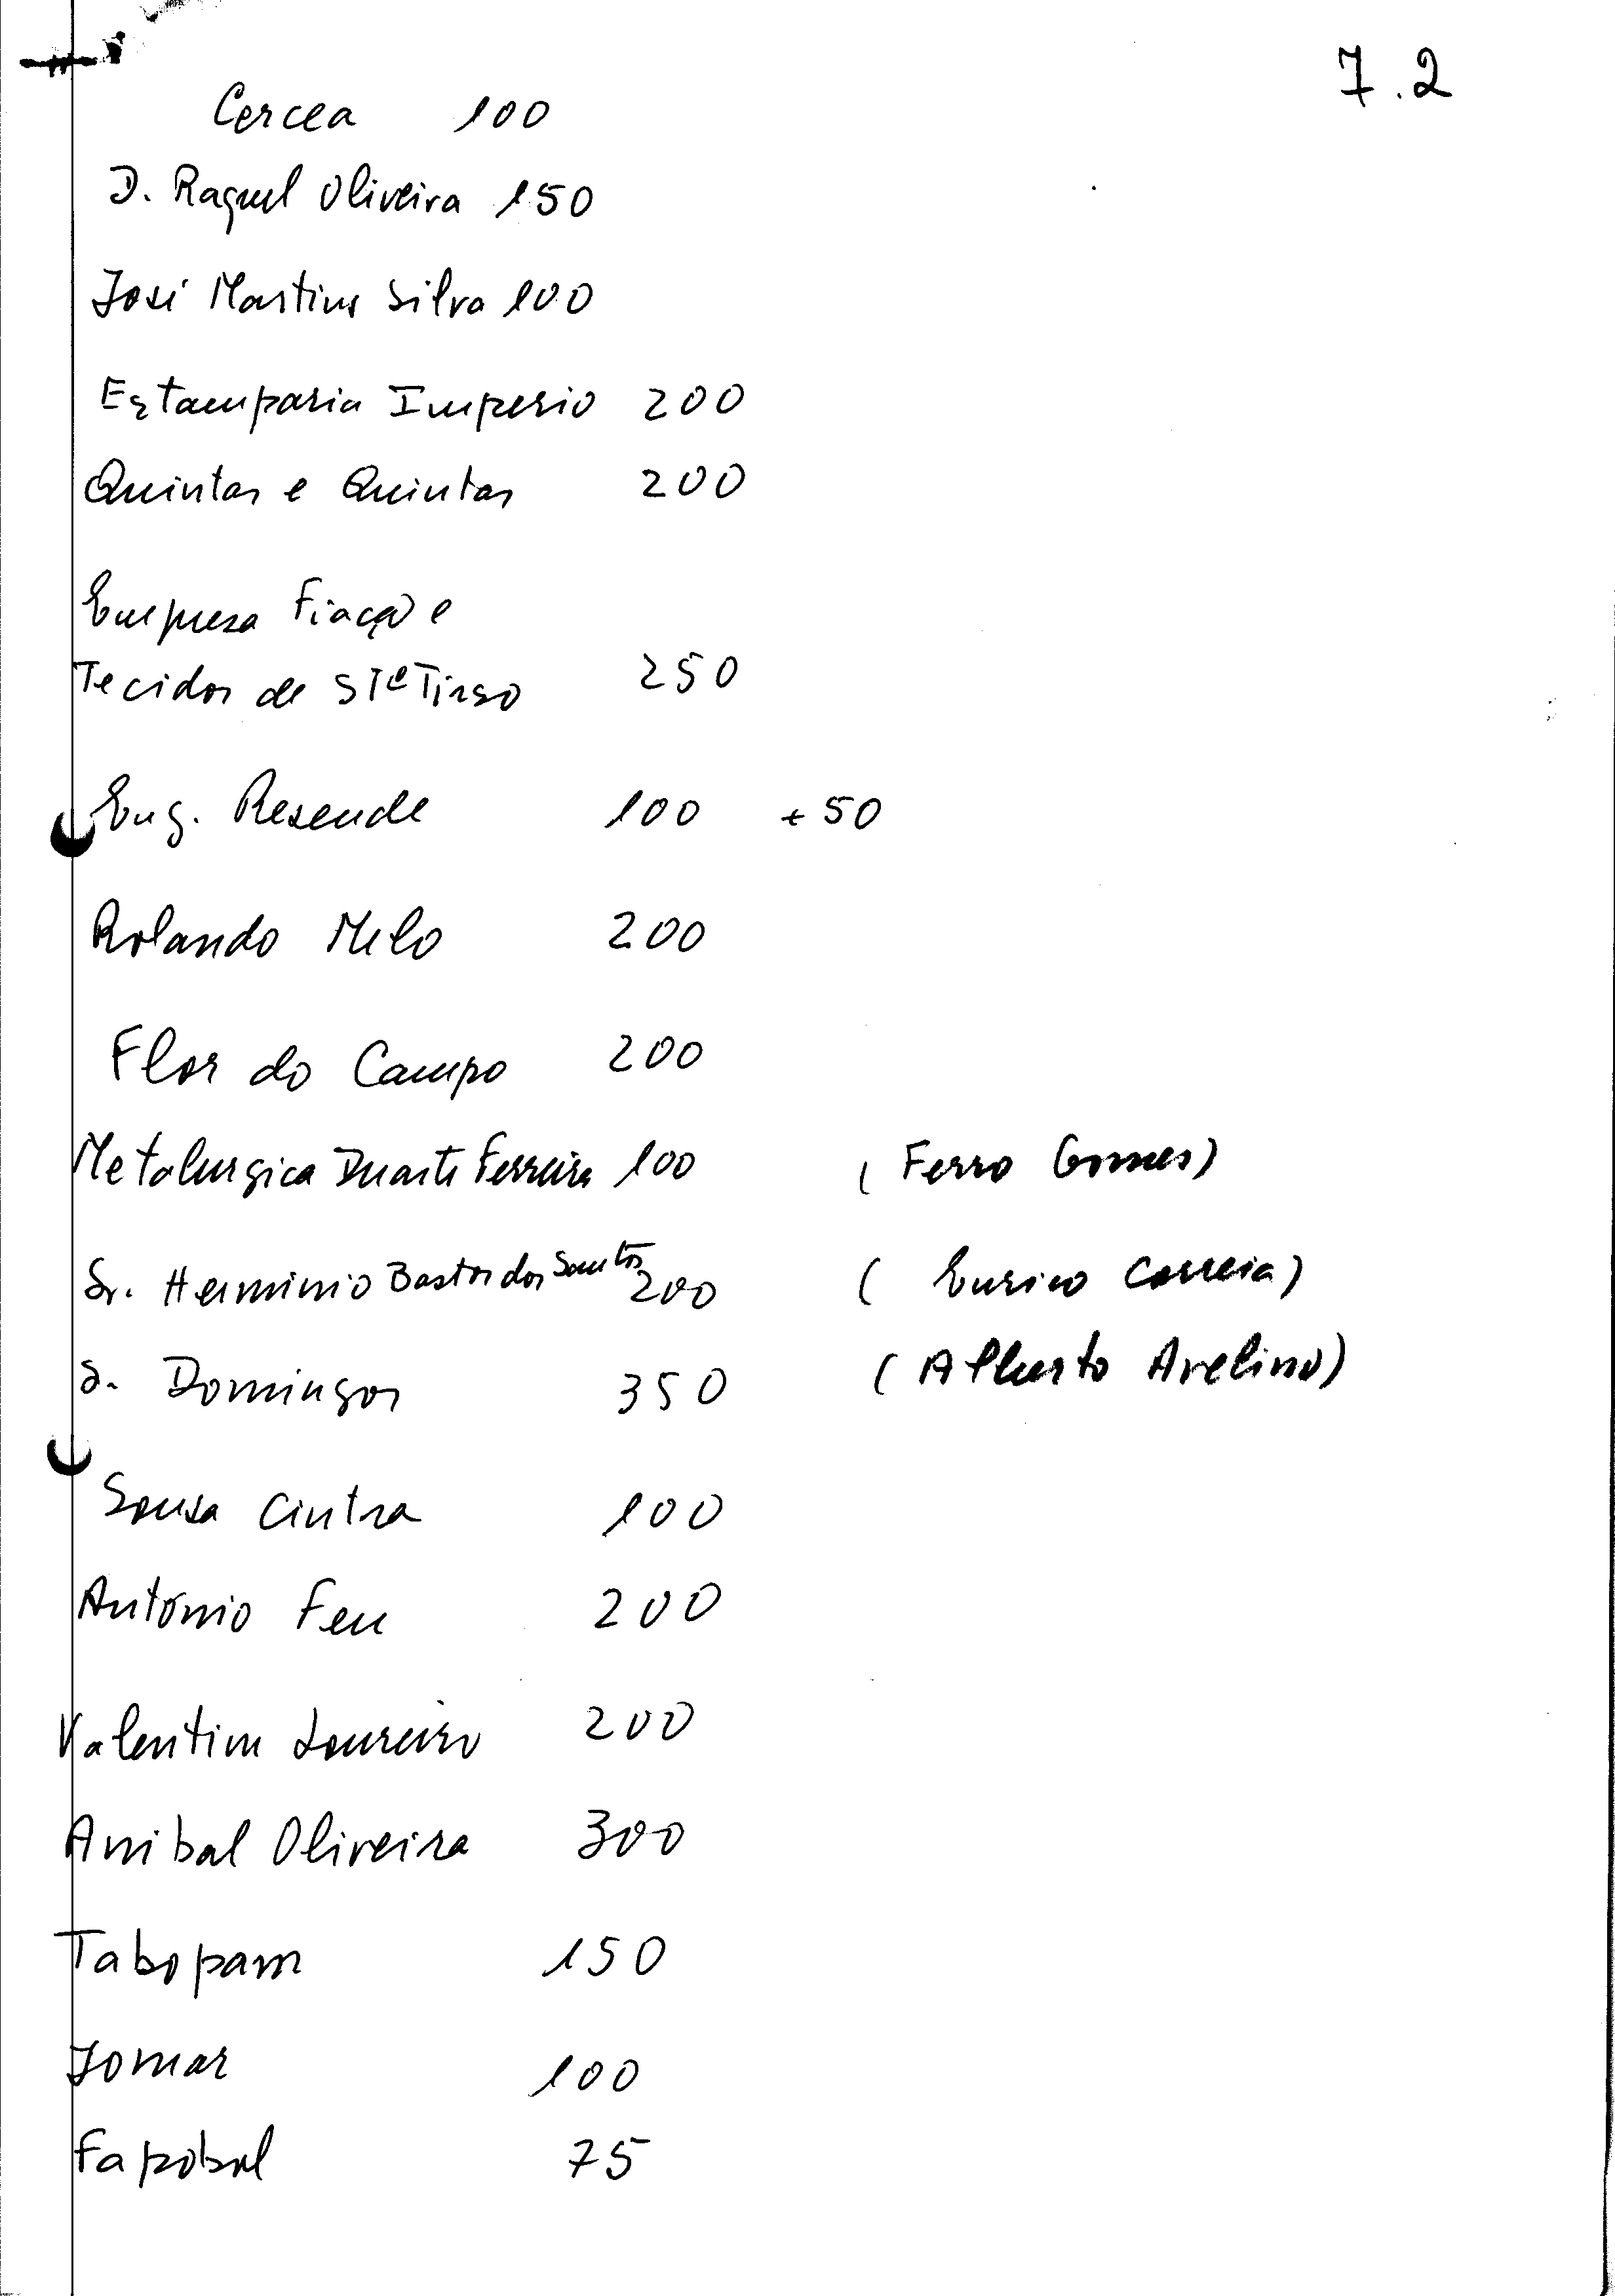 7.2
Cercea 100
D. Raquel Oliveira 150
José Martins Silva 100
Estamparia Imperio 200
Quintas e Quintas 200
Empresa Fiação e
Tecidos de Stº Tirso 250
Eng. Resende 100 + 50
Rolando Melo 200
Flor do Campo 200
Metalurgica Duarte Ferreira 100 (Ferro Gomes)
Sr. Herminio Bastos dos Santos 200 (Eurico Correia)
S. Domingos 350 (Alberto Avelino)
Sousa Cintra 100
António Feu 200
Valentim Loureiro 200
Anibal Oliveira 300
Tabopam 150
Jomar 100
Fapobol 75